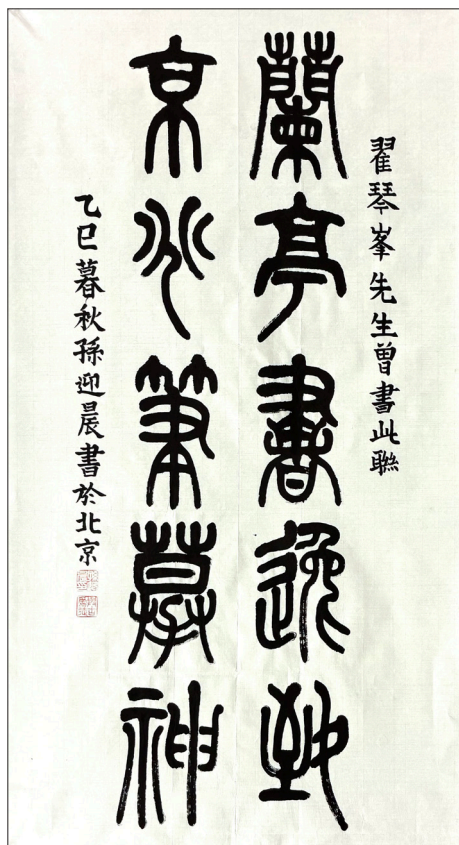 翟琴峯先生曾書此聯
蘭亭書逸致
京兆筆摹神
乙巳暮秋孫迎晨書於北京